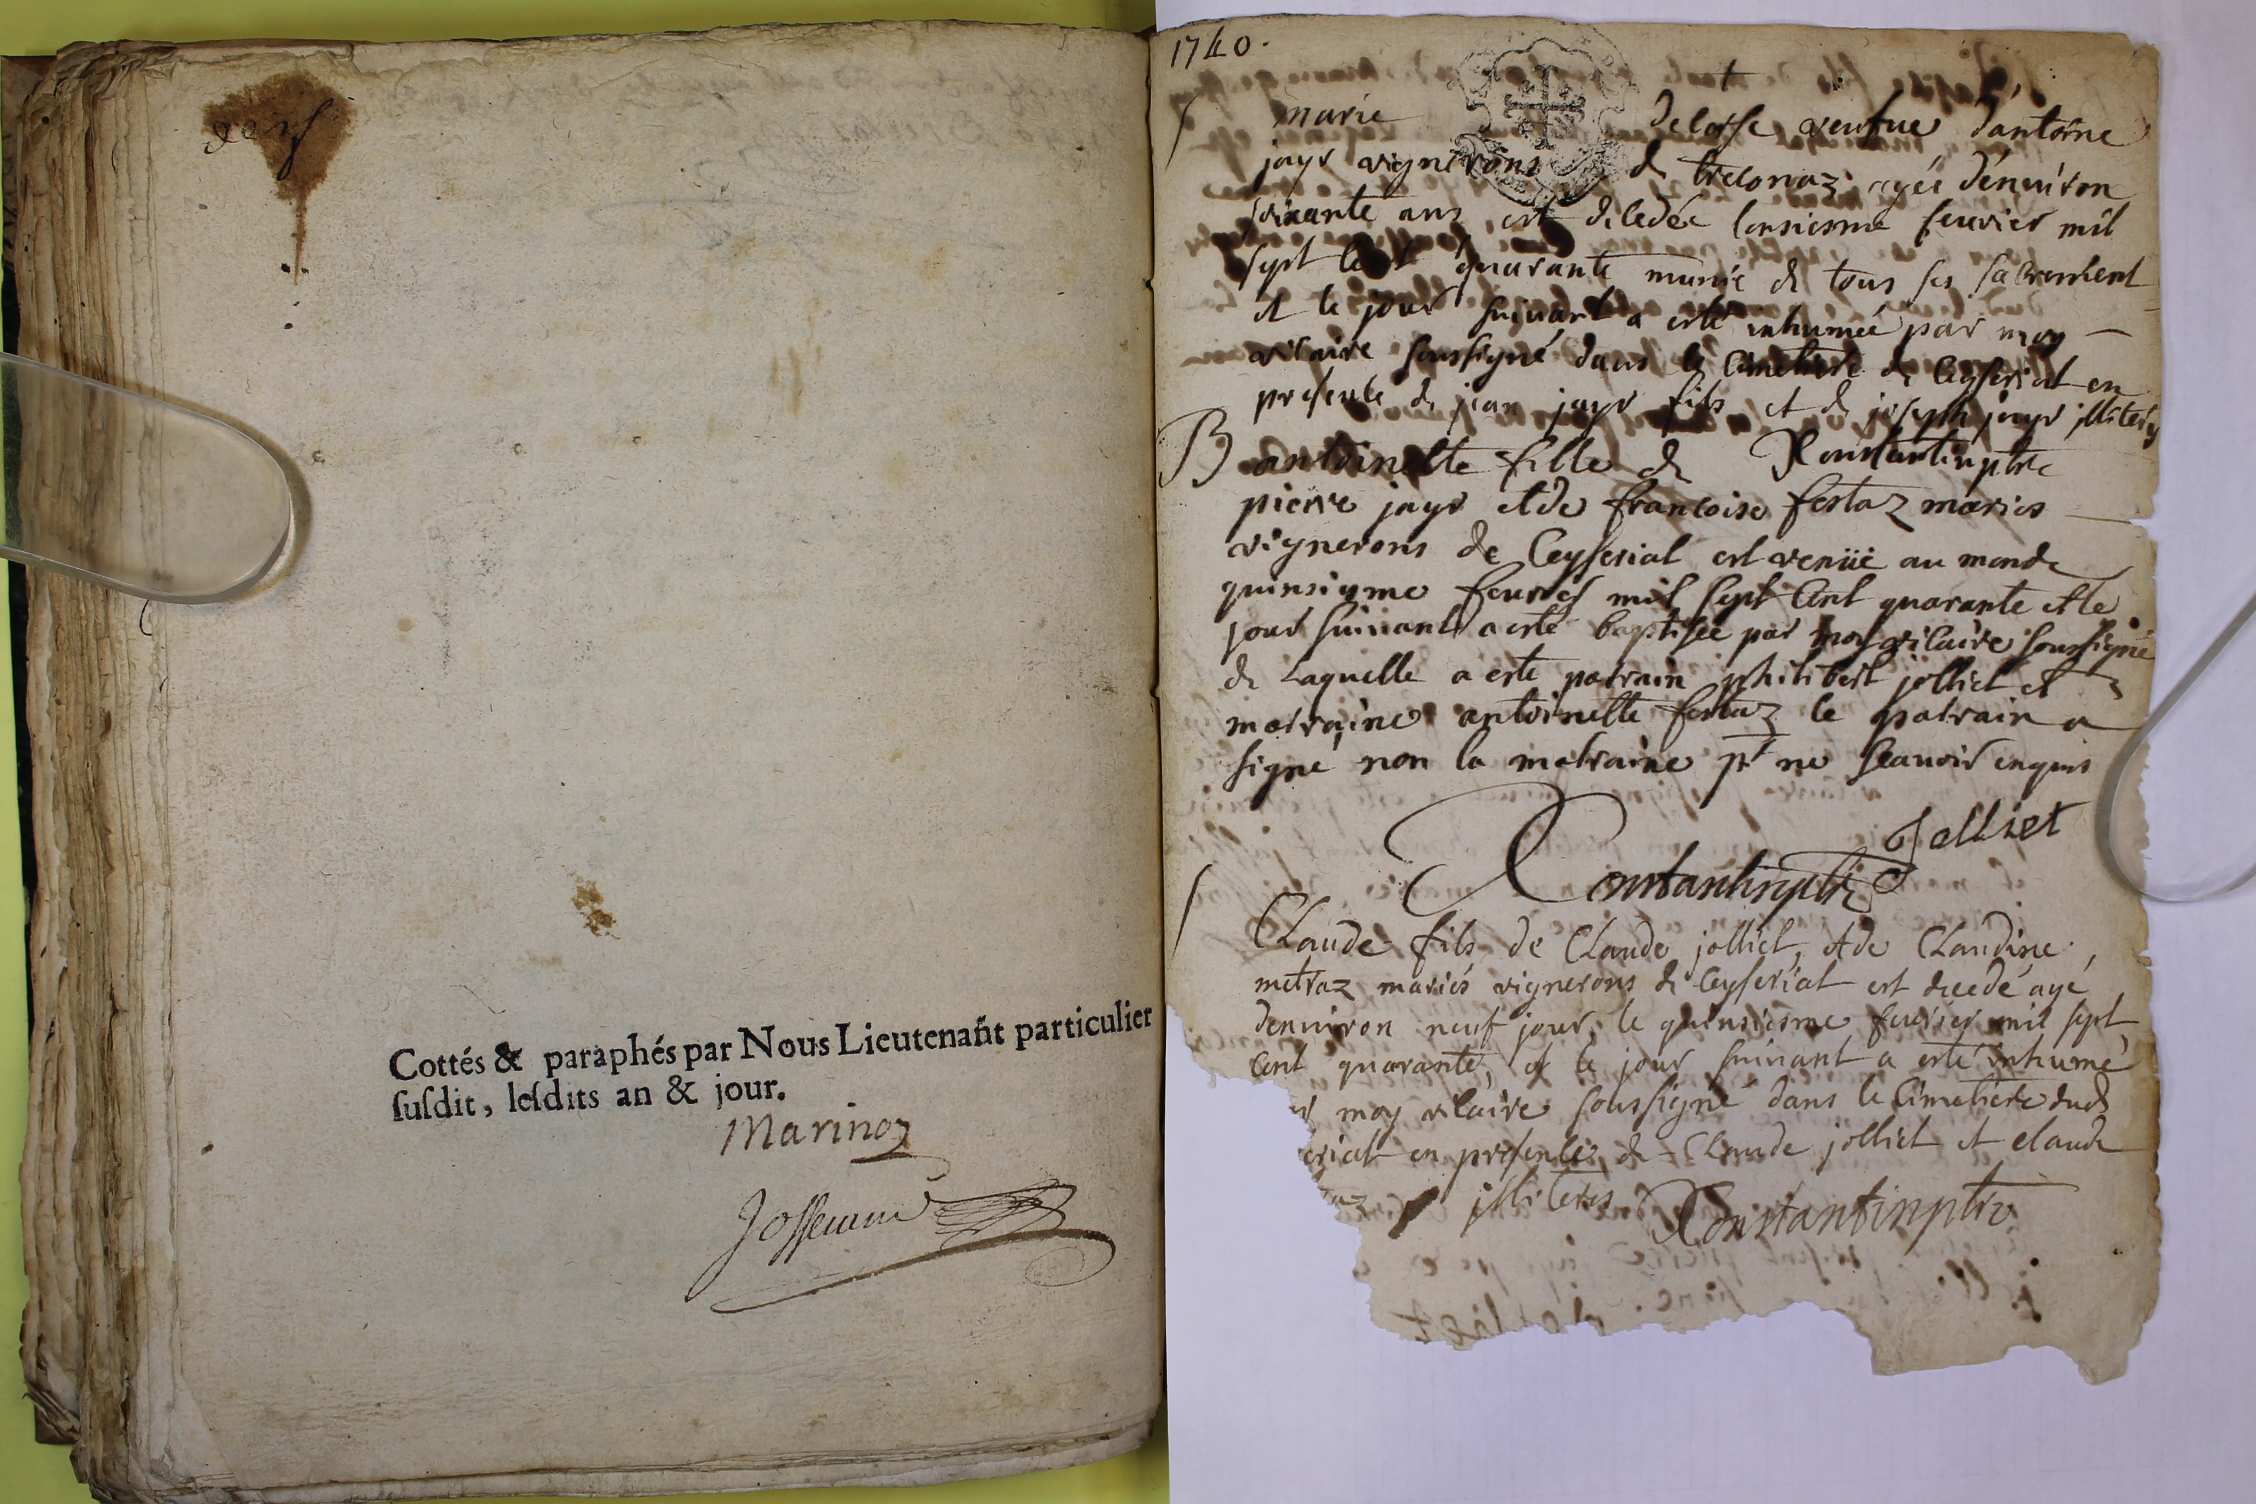 Cottés & paraphés par Nous Lieutenañt particulier
ſuſdit, leſdits an & jour.
Marinoz
1740.
marie delorse veufue d'antoine
jayr vignerons de treconaz agée d'enuiron
soixante ans est decedée l'onsiesme feurier mil
sept cent quarante munie de tous ses sacrement
et le jour suiuant a esté inhumée par moy
vicaire soussigné dans le cimetiere de Ceyseriat en
presence de jean jayr fils et de joseph jayr illiteres
Constantin ptre
B antoinette fille de
pierre jayr et de francoise festaz maries
vignerons de Ceyseriat est venüe au monde
quinsiyme feurier mil sept Cent quarante et le
jour suiuant a esté baptisée par moy vicaire soussigné
de Laquelle a este parrain philibert jolliet et
marraine antoinette festaz le parrain a
signé non la marraine pr ne scauoir enquis
Jolliet
Constantin ptre
Claude fils de Claude jolliet, et de Claudine
metraz mariés vignerons de Ceyseriat est decedé agé
denuiron neuf jour, le quinsiesme feurier mil sept
cent quarante, et le jour suiuant a esté inhumé
moy vicaire soussigné dans le Cimetiere dud
eriat en presence de Claude jolliet et claude
az illiteres Constantin ptre